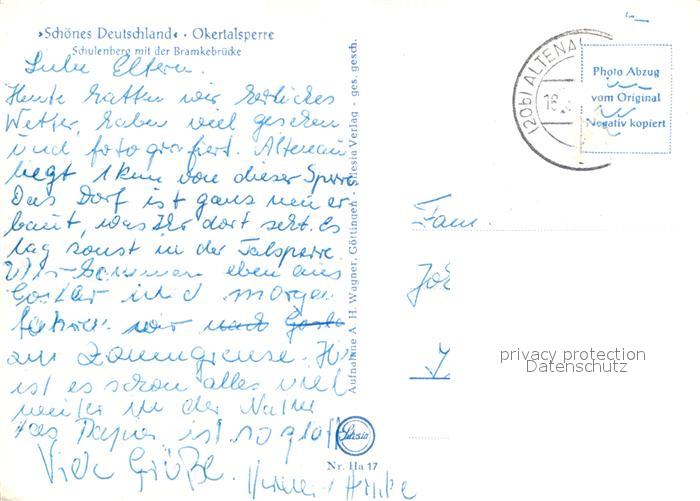 »Schönes Deutschland« · Okertalsperre
Schulenberg mit der Bramkebrücke
Liebe Eltern.
Heute hatten wir herrliches
Wetter, haben viel gesehen
und fotografiert. Altenau
liegt 1km von dieser Sperre.
Das Dorf ist ganz neu er
baut, was Ihr dort seht. Es
lag sonst in der Talsperre.
Wir kommen eben aus
Goslar und morgen
fahren wir nach Gosla
zur Zonengrenze. Hier
ist es schon alles viel
weiter in der Natur
das Papier ist so glatt
Viele Grüße.
Aufnahme A. H. Wagner, Göttingen - Silesia Verlag - ges. gesch.
Silesia
Nr. Ha 17
(20b) ALTENAU
Photo Abzug
vom Original
Negativ kopiert
Fam.
privacy protection
Datenschutz